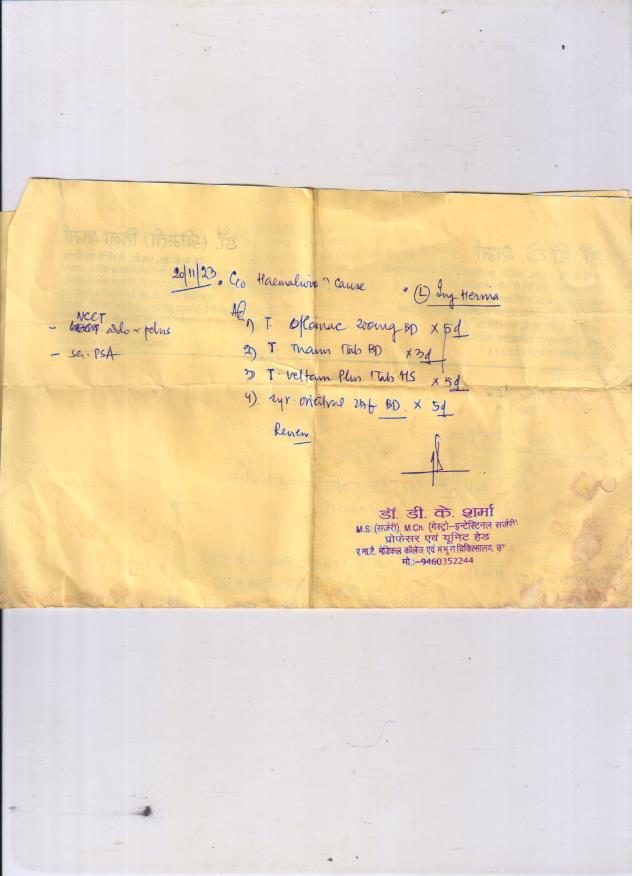 20/11/23 . C/o Haematuria ? cause . (L) Ing Hernia
NCCT
- abdo + pelvis
- ser. PSA
Adv
1) T Oflomac 200mg BD x 5d
2) T 1tab BD x 3d
3) T. Veltam Plus 1tab HS x 5d
4) Syr. BD. x 5d
Review
डॉ. डी. के. शर्मा
M.S. (सर्जरी), M.Ch. (गेस्ट्रो-इन्टेस्टिनल सर्जरी)
प्रोफेसर एवं यूनिट हेड
र.ना.टै. मेडिकल कॉलेज एवं चिकित्सालय, उ
मो.:-9460352244